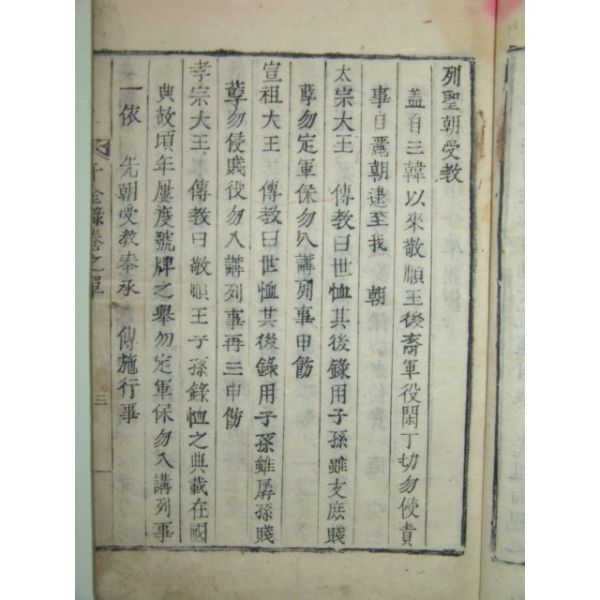 列聖朝受教
盖自三韓以來敬順王後裔軍役閑丁切勿侵責
事自麗朝逮至我 朝
太宗大王 傳教曰世恤其後錄用子孫雖支庶賤
孽勿定軍保勿入講列事申飭
宣祖大王 傳教曰世恤其後錄用子孫雖孱孫賤
孽勿侵賤役勿入講列事再三申飭
孝宗大王 傳教曰敬順王子孫錄恤之典載在國
典故頃年屢度號牌之舉勿定軍保勿入講列事
一依 先朝受教奉承 傳施行事
千金錄卷之單
三